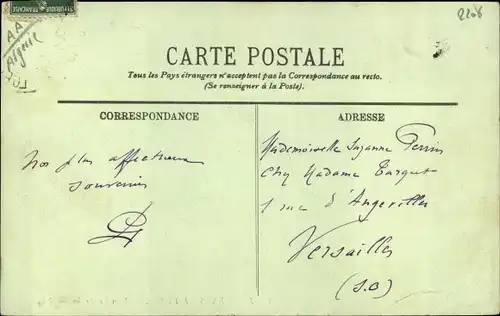 RÉPUBLIQUE FRANÇAISE
2208
AA
Algérie
CARTE POSTALE
Tous les Pays étrangers n'acceptent pas la Correspondance au recto.
(Se renseigner à la Poste).
CORRESPONDANCE
ADRESSE
Nos plus affectueux
souvenirs
Mademoiselle Suzanne Perrin
Chez Madame Targut
1 rue d'Angiviller
Versailles
(S.O)